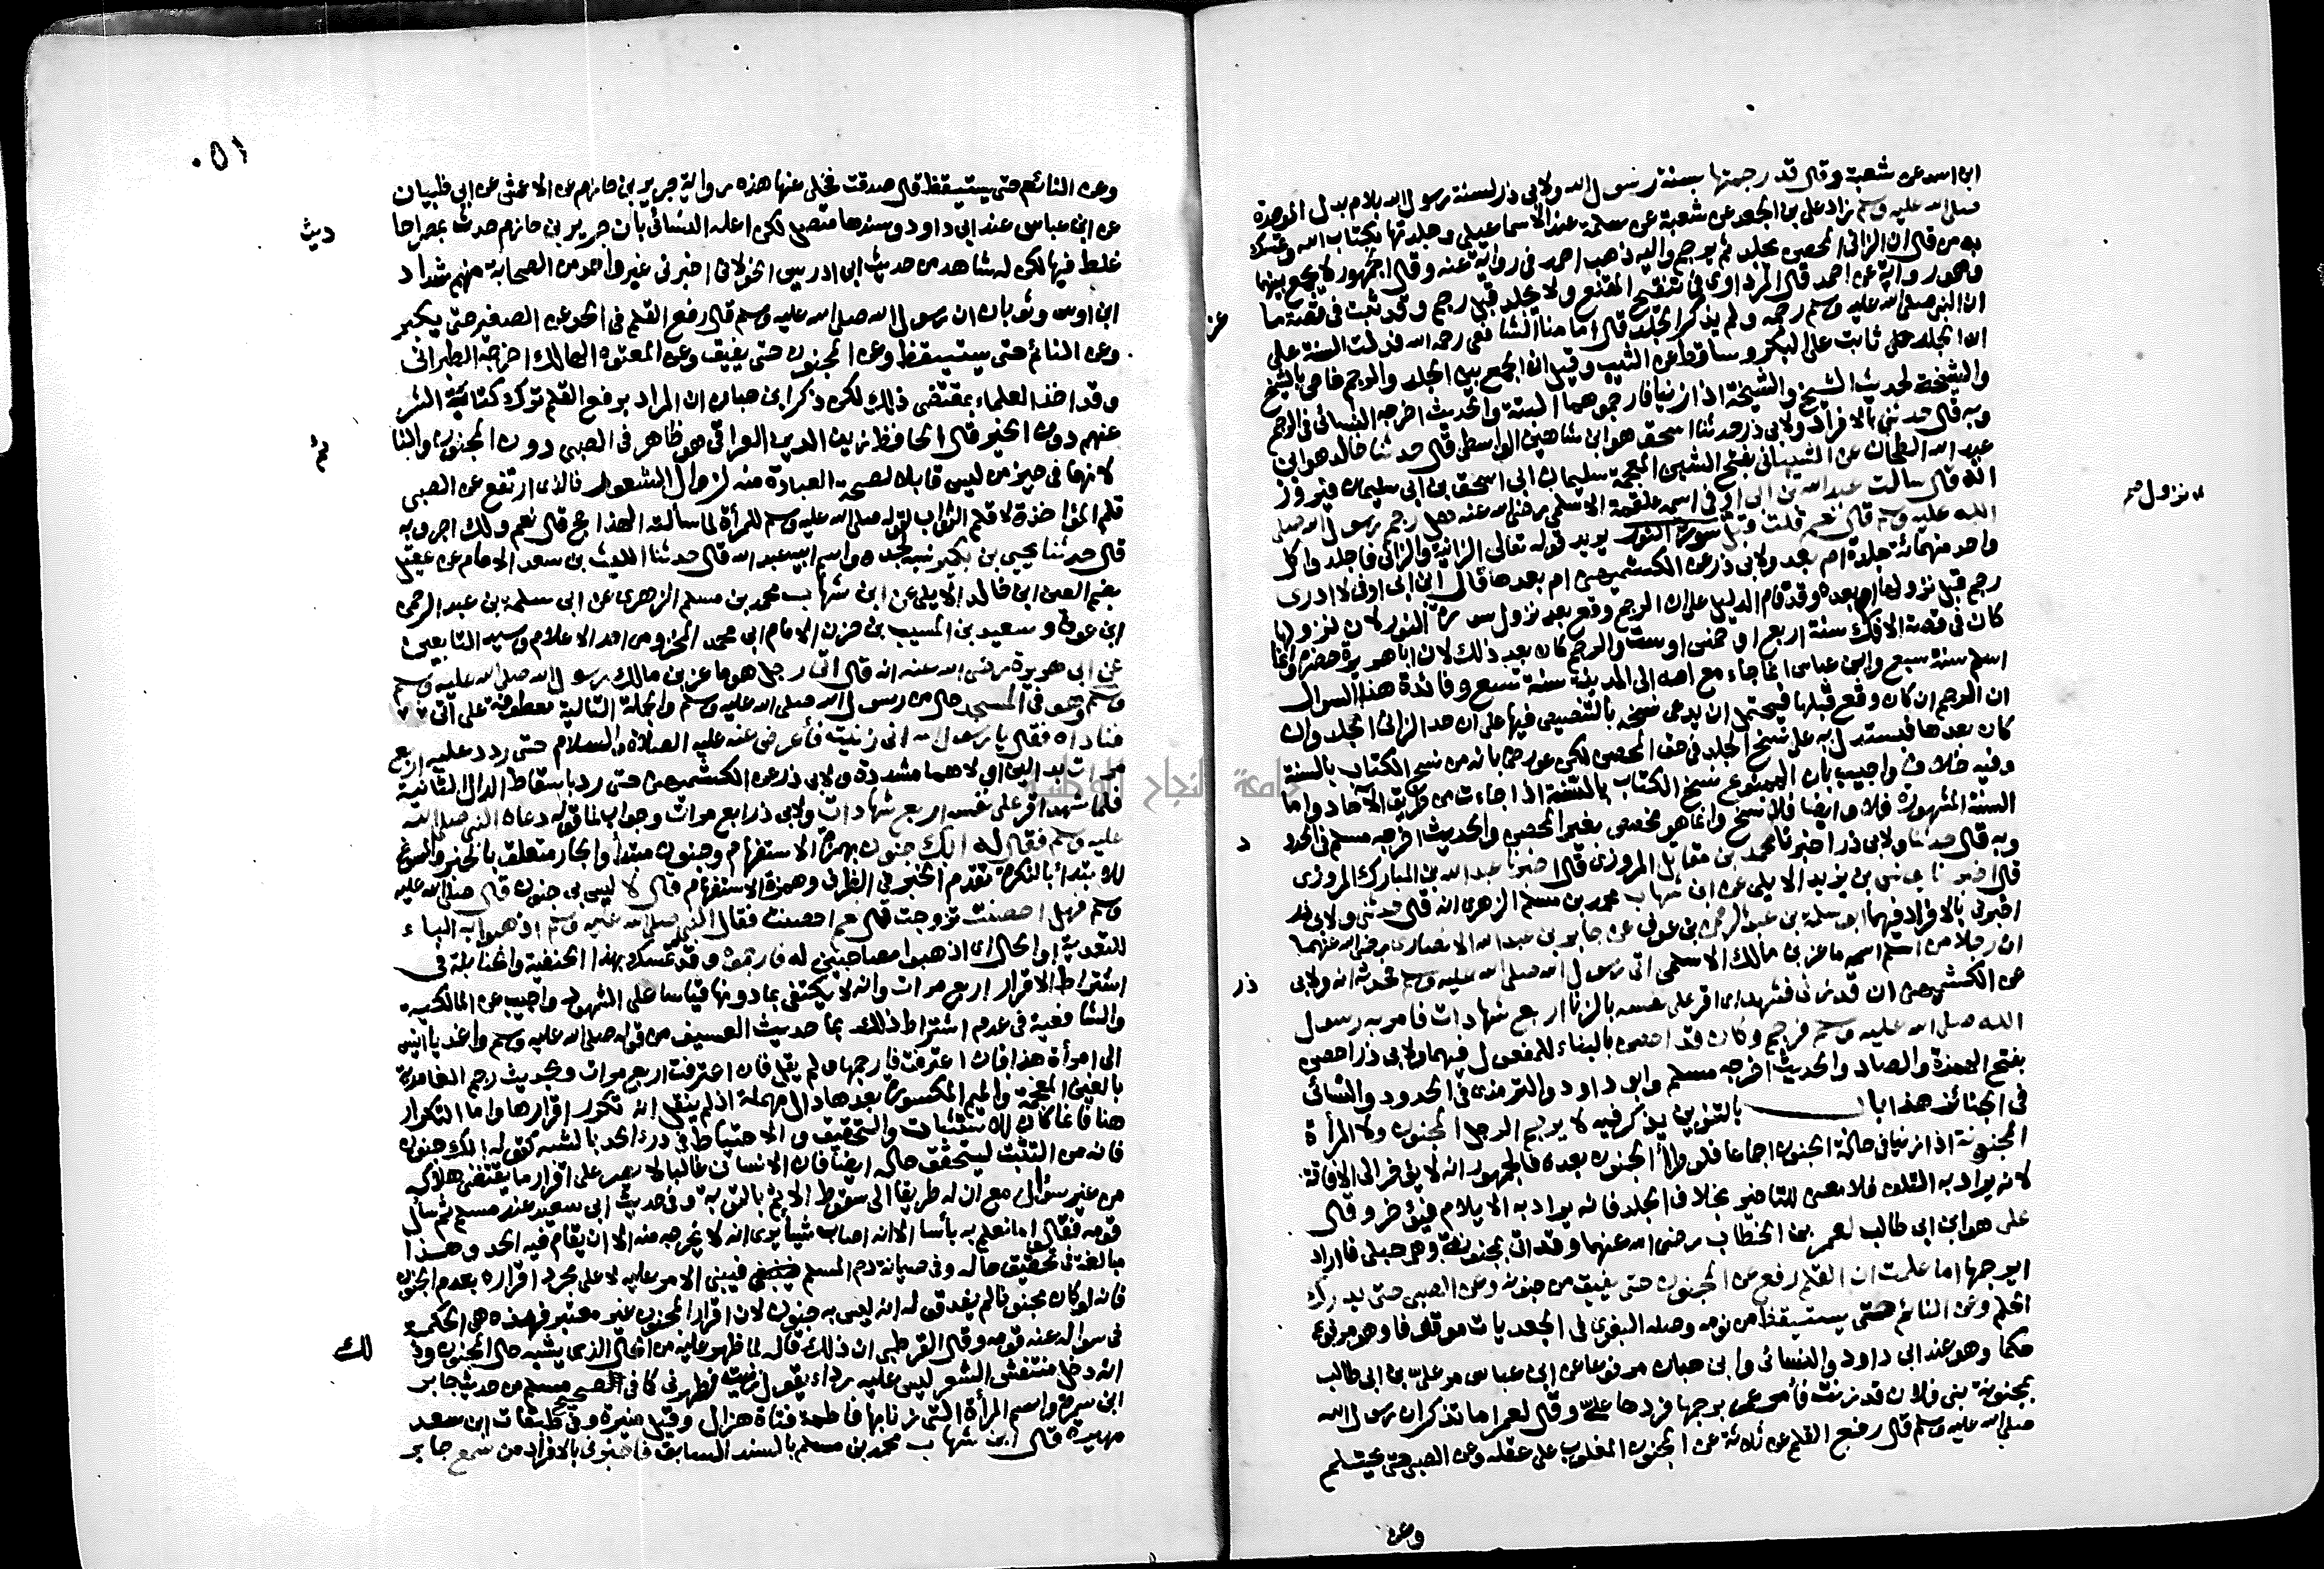 ابن اسد عن شعبة وقال قد رجمتها بسنة رسول الله ولابي ذر لسنة رسول الله بلام بدل الموحدة
صلى الله عليه وسلم زاد علي بن الجعد عن شعبة عن سلمة عند الاسماعيلي وجلدتها بكتاب الله وتمسك
به من قال ان الزاني المحصن يجلد ثم يرجم واليه ذهب احمد في رواية عنه وقال الجمهور لا يجمع بينهما
وهو رواية عن احمد قال المرداوي في تنقيح المقنع ولا يجلد قبل رجم وقد ثبت في قصة ما
عز
ان النبي صلى الله عليه وسلم رجمه ولم يذكر الجلد قال امامنا الشافعي رحمه الله فدلت السنة على
ان الجلد ثابت على البكر وساقط عن الثيب وقيل ان الجمع بين الجلد والرجم خاص بالشيخ
والشيخة لحديث الشيخ والشيخة اذا زنيا فارجموهما البتة والحديث اخرجه النسائي في الرجم
وبه قال حدثني بالافراد ولابي ذر حدثنا اسحق هو ابن شاهين الواسطي قال حدثنا خالد هو ابن
عبد الله الطحان عن الشيباني بفتح الشين المعجمة سليمان ابي اسحق بن ابي سليمان فيروز
انه قال سالت عبد الله بن ابي اوفى اسمه علقمة الاسلمي رضي الله عنه هل رجم رسول الله صلى
الله عليه وسلم قال نعم قلت قبل سورة النور يريد قوله تعالى الزانية والزاني فاجلدوا كل
نزول صح
واحد منهما مائة جلدة ام بعد ولابي ذر عن الكشميهني ام بعدها قال ابن ابي اوفى لا ادري
رجم قبل نزولها ام بعده وقد قام الدليل على ان الرجم وقع بعد نزول سورة النور لان نزولها
كان في قصة الافك سنة اربع او خمس او ست والرجم كان بعد ذلك لان ابا هريرة حضره وانما
اسلم سنة سبع وابن عباس انما جاء مع امه الى المدينة سنة تسع وفائدة هذا السوال
ان الرجم ان كان وقع قبلها فيحتمل ان يدعى نسخه بالتنصيص فيها على ان حد الزاني الجلد وان
كان بعدها فيستدل به على نسخ الجلد في حق المحصن لكن عورض بانه من نسخ الكتاب بالسنة
وفيه خلاف واجيب بان الممنوع نسخ الكتاب بالسنة اذا جاءت من طريق الآحاد واما
السنة المشهورة فلا وايضا فلا نسخ وانما هو مخصص بغير المحصن والحديث اخرجه مسلم في الحدو
د
وبه قال حدثنا ولابي ذر اخبرنا محمد بن مقاتل المروزي قال اخبرنا عبد الله بن المبارك المروزي
قال اخبرنا يونس بن يزيد الايلي عن ابن شهاب محمد بن مسلم الزهري انه قال حدثني ولابي ذر
اخبرني بالافراد فيهما ابو سلمة بن عبد الرحمن بن عوف عن جابر بن عبد الله الانصاري رضي الله عنهما
ان رجلا من اسلم اسمه ماعز بن مالك الاسلمي اتى رسول الله صلى الله عليه وسلم فحدثه انه ولابي
ذر
عن الكشميهني ان قد زنى فشهد اي اقر على نفسه بالزنا اربع شهادات فامر به رسول
الله صلى الله عليه وسلم فرجم وكان قد احصن بالبناء للمفعول فيهما ولابي ذر احصن
بفتح الهمزة والصاد والحديث اخرجه مسلم وابو داود والترمذي في الحدود والنسائي
في الجنائز هذا باب بالتنوين يذكر فيه لا يرجم الرجل المجنون ولا المرأة
المجنونة اذا زنيا في حالة الجنون اجماعا فلو طرأ الجنون بعده فالجمهور انه لا يؤخر الى الافاقة
لانه يراد به التلف فلا معنى للتاخير بخلاف الجلد فانه يراد به الايلام فيؤخر وقال
علي هو ابن ابي طالب لعمر بن الخطاب رضي الله عنهما وقد اتي بمجنونة وهي حبلى فاراد
ان يرجمها اما علمت ان القلم رفع عن المجنون حتى يفيق من جنونه وعن الصبي حتى يدرك
الحلم وعن النائم حتى يستيقظ من نومه وصله البغوي في الجعديات موقوفا وهو مرفوع
حكما وهو عند ابي داود والنسائي وابن حبان مرفوعا عن ابن عباس مر علي بن ابي طالب
بمجنونة بني فلان قد زنت فأمر عمر برجمها فردها علي وقال لعمر اما تذكر ان رسول الله
صلى الله عليه وسلم قال رفع القلم عن ثلاثة عن المجنون المغلوب على عقله وعن الصبي حتى يحتلم
وعن
٠٥١
وعن النائم حتى يستيقظ قال صدقت فخلى عنها هذه رواية جرير بن حازم عن الاعمش عن ابي ظبيان
عن ابن عباس عند ابي داود وسندها متصل لكن اعله النسائي بأن جرير بن حازم حدث بمصر احا
ديث
غلط فيها لكن له شاهد من حديث ابي ادريس الخولاني اخبرني غير واحد من الصحابة منهم شداد
ابن اوس وثوبان ان رسول الله صلى الله عليه وسلم قال رفع القلم في الحد عن الصغير حتى يكبر
وعن النائم حتى يستيقظ وعن المجنون حتى يفيق وعن المعتوه الهالك اخرجه الطبراني
وقد اخذ العلماء بمقتضى ذلك لكن ذكر ابن حبان ان المراد برفع القلم ترك كتابة الشر
عنهم دون الخير قال الحافظ زين الدين العراقي هو ظاهر في الصبي دون المجنون والنا
ئم
لانهما في حيز من ليس قابلا لصحة العبادة منه لزوال الشعور فالذي ارتفع عن الصبي
قلم المؤاخذة لا قلم الثواب لقوله صلى الله عليه وسلم للمرأة لما سألته الهذا حج قال نعم ولك اجر وبه
قال حدثنا يحيى بن بكير نسبه لجده واسم ابيه عبد الله قال حدثنا الليث بن سعد الامام عن عقيل
بضم العين ابن خالد الايلي عن ابن شهاب محمد بن مسلم الزهري عن ابي سلمة بن عبد الرحمن
ابن عوف وسعيد بن المسيب بن حزن الامام ابي محمد المخزومي احد الاعلام وسيد التابعين
عن ابي هريرة رضي الله عنه انه قال اتى رجل هو ماعز بن مالك رسول الله صلى الله عليه وسلم
وسلم وهو في المسجد حال من رسول الله صلى الله عليه وسلم والجملة التالية معطوفة على اتى
فناداه فقال يا رسول الله اني زنيت فأعرض عنه عليه الصلاة والسلام حتى ردد عليه اربع
مرات بدالين اولاهما مشددة ولابي ذر عن الكشميهني حتى رد باسقاط الدال الثانية
فلما شهد اقر على نفسه اربع شهادات ولابي ذر اربع مرات وجواب لما قوله دعاه النبي صلى الله
عليه وسلم فقال له ابك جنون بهمزة الاستفهام وجنون مبتدأ والجار متعلق بالخبر والمسوغ
للابتداء بالنكرة تقدم الخبر في الظرف وهمزة الاستفهام قال لا ليس بي جنون قال صلى الله عليه
وسلم فهل احصنت تزوجت قال نعم احصنت فقال النبي صلى الله عليه وسلم اذهبوا به الباء
للتعدية او الحال اي اذهبوا مصاحبين له فارجموه وقد تمسك بهذا الحنفية والحنابلة في
اشتراط الاقرار اربع مرات وانه لا يكتفى بما دونها قياسا على الشهود واجيب عن المالكية
والشافعية في عدم اشتراط ذلك بما حديث العسيف من قوله صلى الله عليه وسلم واغد يا انيس
الى امرأة هذا فان اعترفت فارجمها ولم يقل فان اعترفت اربع مرات وبحديث رجم الغامدية
بالغين المعجمة والميم المكسورة بعدها دال مهملة اذ لم ينقل انه تكرر اقرارها واما التكرار
هنا فانما كان للاستثبات والتحقيق والاحتياط في درء الحد بالشبه كقوله ابك جنون
فانه من التثبت ليتحقق حاله ايضا فان الانسان غالبا لا يصر على اقرار ما يقتضي هلاكه
من غير سؤال مع ان له طريقا الى سقوط الاثم بالتوبة وفي حديث ابي سعيد عند مسلم ثم سأل
قومه فقالوا ما نعلم به بأسا الا انه اصاب شيأ يرى انه لا يخرجه منه الا ان يقام فيه الحد وهذا
مبالغة في تحقيق حاله وفي صيانة دم المسلم فيبنى الامر عليه لا على مجرد اقراره بعدم الجنون
فانه لو كان مجنونا لم يفد قوله انه ليس به جنون لان اقرار المجنون غير معتبر فهذه هي الحكمة
في سؤاله عنه قومه وقال القرطبي ان ذلك قاله لما ظهر عليه من الحال الذي يشبه حال المجنون وذ
لك
انه دخل منتفش الشعر ليس عليه رداء يقول زنيت فطهرني كما في الصحيح مسلم من حديث جابر
ابن سمرة واسم المرأة التي زنا بها فاطمة فتاة هزال وقيل منيرة وفي طبقات ابن سعد
مهيرة قال ابن شهاب محمد بن مسلم بالسند السابق فاخبرني بالافراد من سمع جابر
جامعة النجاح الوطنية